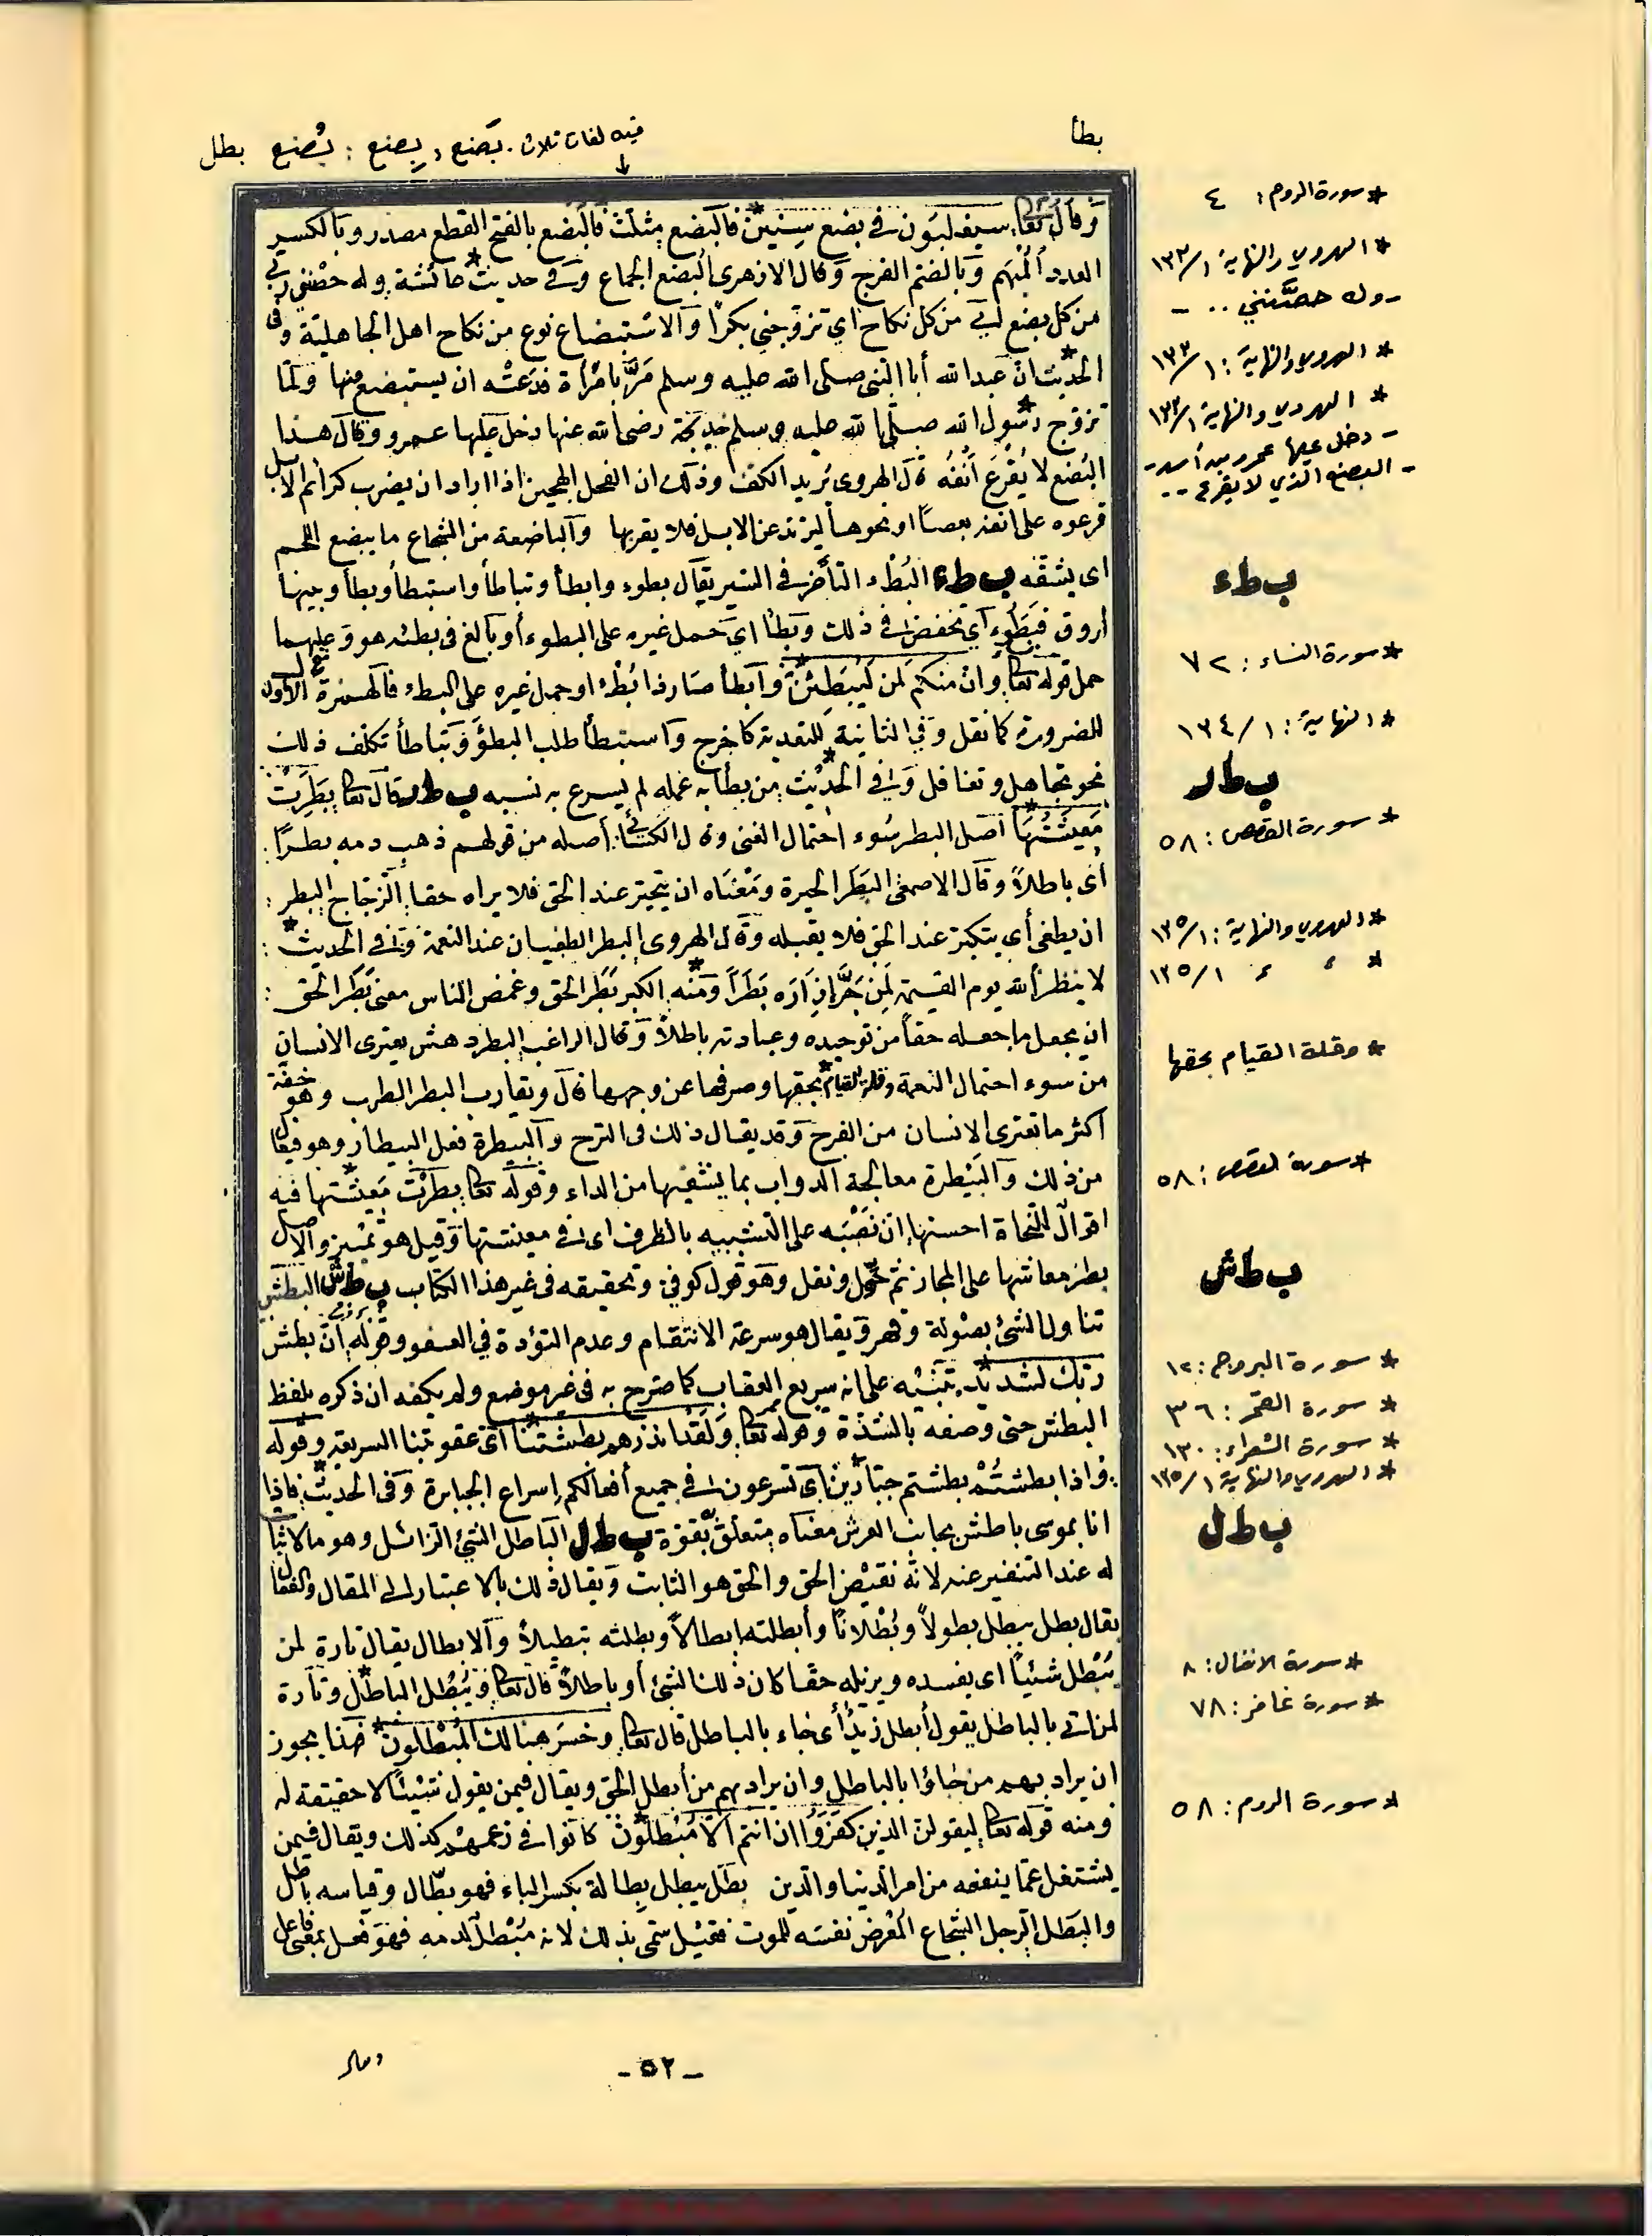 بطأ
فيه لغات ثلاث. بَضع، بِضع؛ بُضع بطل
وقال تعالى سيغلبون في بضع سنين* فالبضع مثلث فالبضع بالفتح القطع مصدر وبالكسر
العدد المبهم وبالضم الفرج وقال الازهرى البضع الجماع وفى حديث* عائشة وله حصننى ربى
من كل بضع اى من كل نكاح اى تزوجنى بكرًا والاستبضاع نوع من نكاح اهل الجاهلية وفى
الحديث* ان عبدالله أبا النبى صلى الله عليه وسلم مرّ بامرأة فدعته ان يستبضع منها ولما
تزوج رسول* الله صلى الله عليه وسلم خديجة رضى الله عنها دخل عليها عمرو وقال هذا
البُضع لا يُقرع أنفه قال الهروى يُريد الكفء وذلك ان الفحل الهجين اذا اراد ان يضرب كرائم الابل
قرعوه على انفه بعصًا او نحوها ليرتد عن الابل فلا يقربها والباضعة من الشجاج ما يبضع اللحم
اى يشقه ب ط ء البُطْء التأخر فى السير يقال بطوء وابطأ وتباطأ واستبطأ وبطأ وبينها
فروق فبطُوء اى تخصص فى ذلك وبطّأ اى حمل غيره على البطوء أو بالغ فى بطئه هو وعليهما
حمل قوله تعالى وان منكم لمن ليبطئن* وأبطأ صار ذا بُطْء او حمل غيره على البطء فالهمزة فى الأول
للضرورة كانقل وفى الثانية للتعدية كاخرج واستبطأ طلب البطؤ وتباطأ تكلف ذلك
نحو تجاهل وتغافل وفى الحديث* من بطأ به عمله لم يسرع به نسبه ب ط ر قال تعالى بطرت
معيشتها* اصل البطر سُوء احتمال الغنى وقال الكسائى أصله من قولهم ذهب دمه بطرًا
أى باطلاً وقال الاصمعى البَطر الحيرة ومعناه ان يتحير عند الحق فلا يراه حقا الزجاج البطر
ان يطغى أى يتكبر عند الحق فلا يقبله وقال الهروى البطر الطغيان عند النعمة وفى الحديث*
لا ينظر الله يوم القيمة لمن جَرَّ إزاره بَطَراً ومنه* الكبر بَطَر الحق وغمص الناس معنى بَطَر الحق
ان يجعل ما جعله حقاً من توحيده وعبادته باطلاً وقال الراغب البطر دهش يعترى الانسان
من سوء احتمال النعمة وقلة القيام* بحقها وصرفها عن وجهها قال ويقارب البطر الطرب وهو خفة
اكثر ما تعترى الانسان من الفرح وقد يقال ذلك فى الترح والبيطرة فعل البيطار وهو فيعال
من ذلك والبَيْطرة معالجة الدواب بما يشفيها من الداء وقوله تعالى بطرت معيشتها* فيه
اقوال للنحاة احسنها ان نَصْبَه على التشبيه بالظرف اى فى معيشتها وقيل هو تمييز والاصل
بطر معاشها على المجاز ثم حُوّل ونقل وهو قول كوفى وتحقيقه فى غير هذا الكتاب ب ط ش البطش
تناول الشئ بصولة وقهر ويقال هو سرعة الانتقام وعدم التؤدة فى العفو وقوله ان بطش
ربك لشديد* تنبيه على انه سريع العقاب كما صرح به فى غير موضع ولم يكفه ان ذكره بلفظ
البطش حتى وصفه بالشدة وقوله تعالى ولقد انذرهم بطشتنا* اى عقوبتنا السريعة وقوله
واذا بطشتم بطشتم جبارين* اى تسرعون فى جميع أفعالكم إسراع الجبابرة وفى الحديث* فاذا
انا بموسى باطش بجانب العرش معناه متعلق بقوة ب ط ل الباطل الشئ الزائل وهو مالا ثبات
له عند التنقير عنه لانه نقيض الحق والحق هو الثابت ويقال ذلك بالاعتبار الى المقال والفعال
يقال بطل يبطل بطولاً وبُطْلانًا وأبطلته إبطالاً وبطلته تبطيلاً والابطال يقال تارة لمن
يُبْطل شيئاً اى يفسده ويزيله حقا كان ذلك الشئ أو باطلاً قال تعالى ويُبْطل الباطل* وتارة
لمن اتى بالباطل يقول أبطل زيدٌ أى جاء بالباطل قال تعالى وخسر هنالك المُبْطلون* هذا يجوز
ان يراد بهم من جاؤا بالباطل وان يراد بهم من أبطل الحق ويقال فيمن يقول شيئًا لا حقيقة له
ومنه قوله تعالى ليقولن الذين كفروا ان انتم الا مُبْطلون* كانوا فى زعمهم كذلك ويقال فيمن
يشتغل عمّا ينفعه من امر الدنيا والدين بطَل يبطل بِطالة بكسر الباء فهو بطّال وقياسه باطل
والبَطَل الرجل الشجاع المُعْرض نفسه للموت فقيل سُمّى بذلك لانه مُبْطل لدمه فهو فعل بمعنى فاعل
* سورة الروم: ٤
* الهروي والنهاية ١/١٣٣
- وله حصَّنني .. -
* الهروي والنهاية: ١/١٣٣
* الهروي والنهاية ١/١٣٣
- دخل عليها عمرو بن أسد -
- البضع الذي لا يقرع --
ب ط ء
* سورة النساء: ٧٢
* النهاية: ١/١٣٤
ب ط ر
* سورة القصص: ٥٨
* الهروي والنهاية: ١/١٣٥
* ، ، ١/١٣٥
* وقلة القيام بحقها
* سورة القصص: ٥٨
ب ط ش
* سورة البروج: ١٢
* سورة القمر: ٣٦
* سورة الشعراء: ١٣٠
* الهروي والنهاية ١/١٣٥
ب ط ل
* سورة الانفال: ٨
* سورة غافر: ٧٨
* سورة الروم: ٥٨
- ٥٢ -